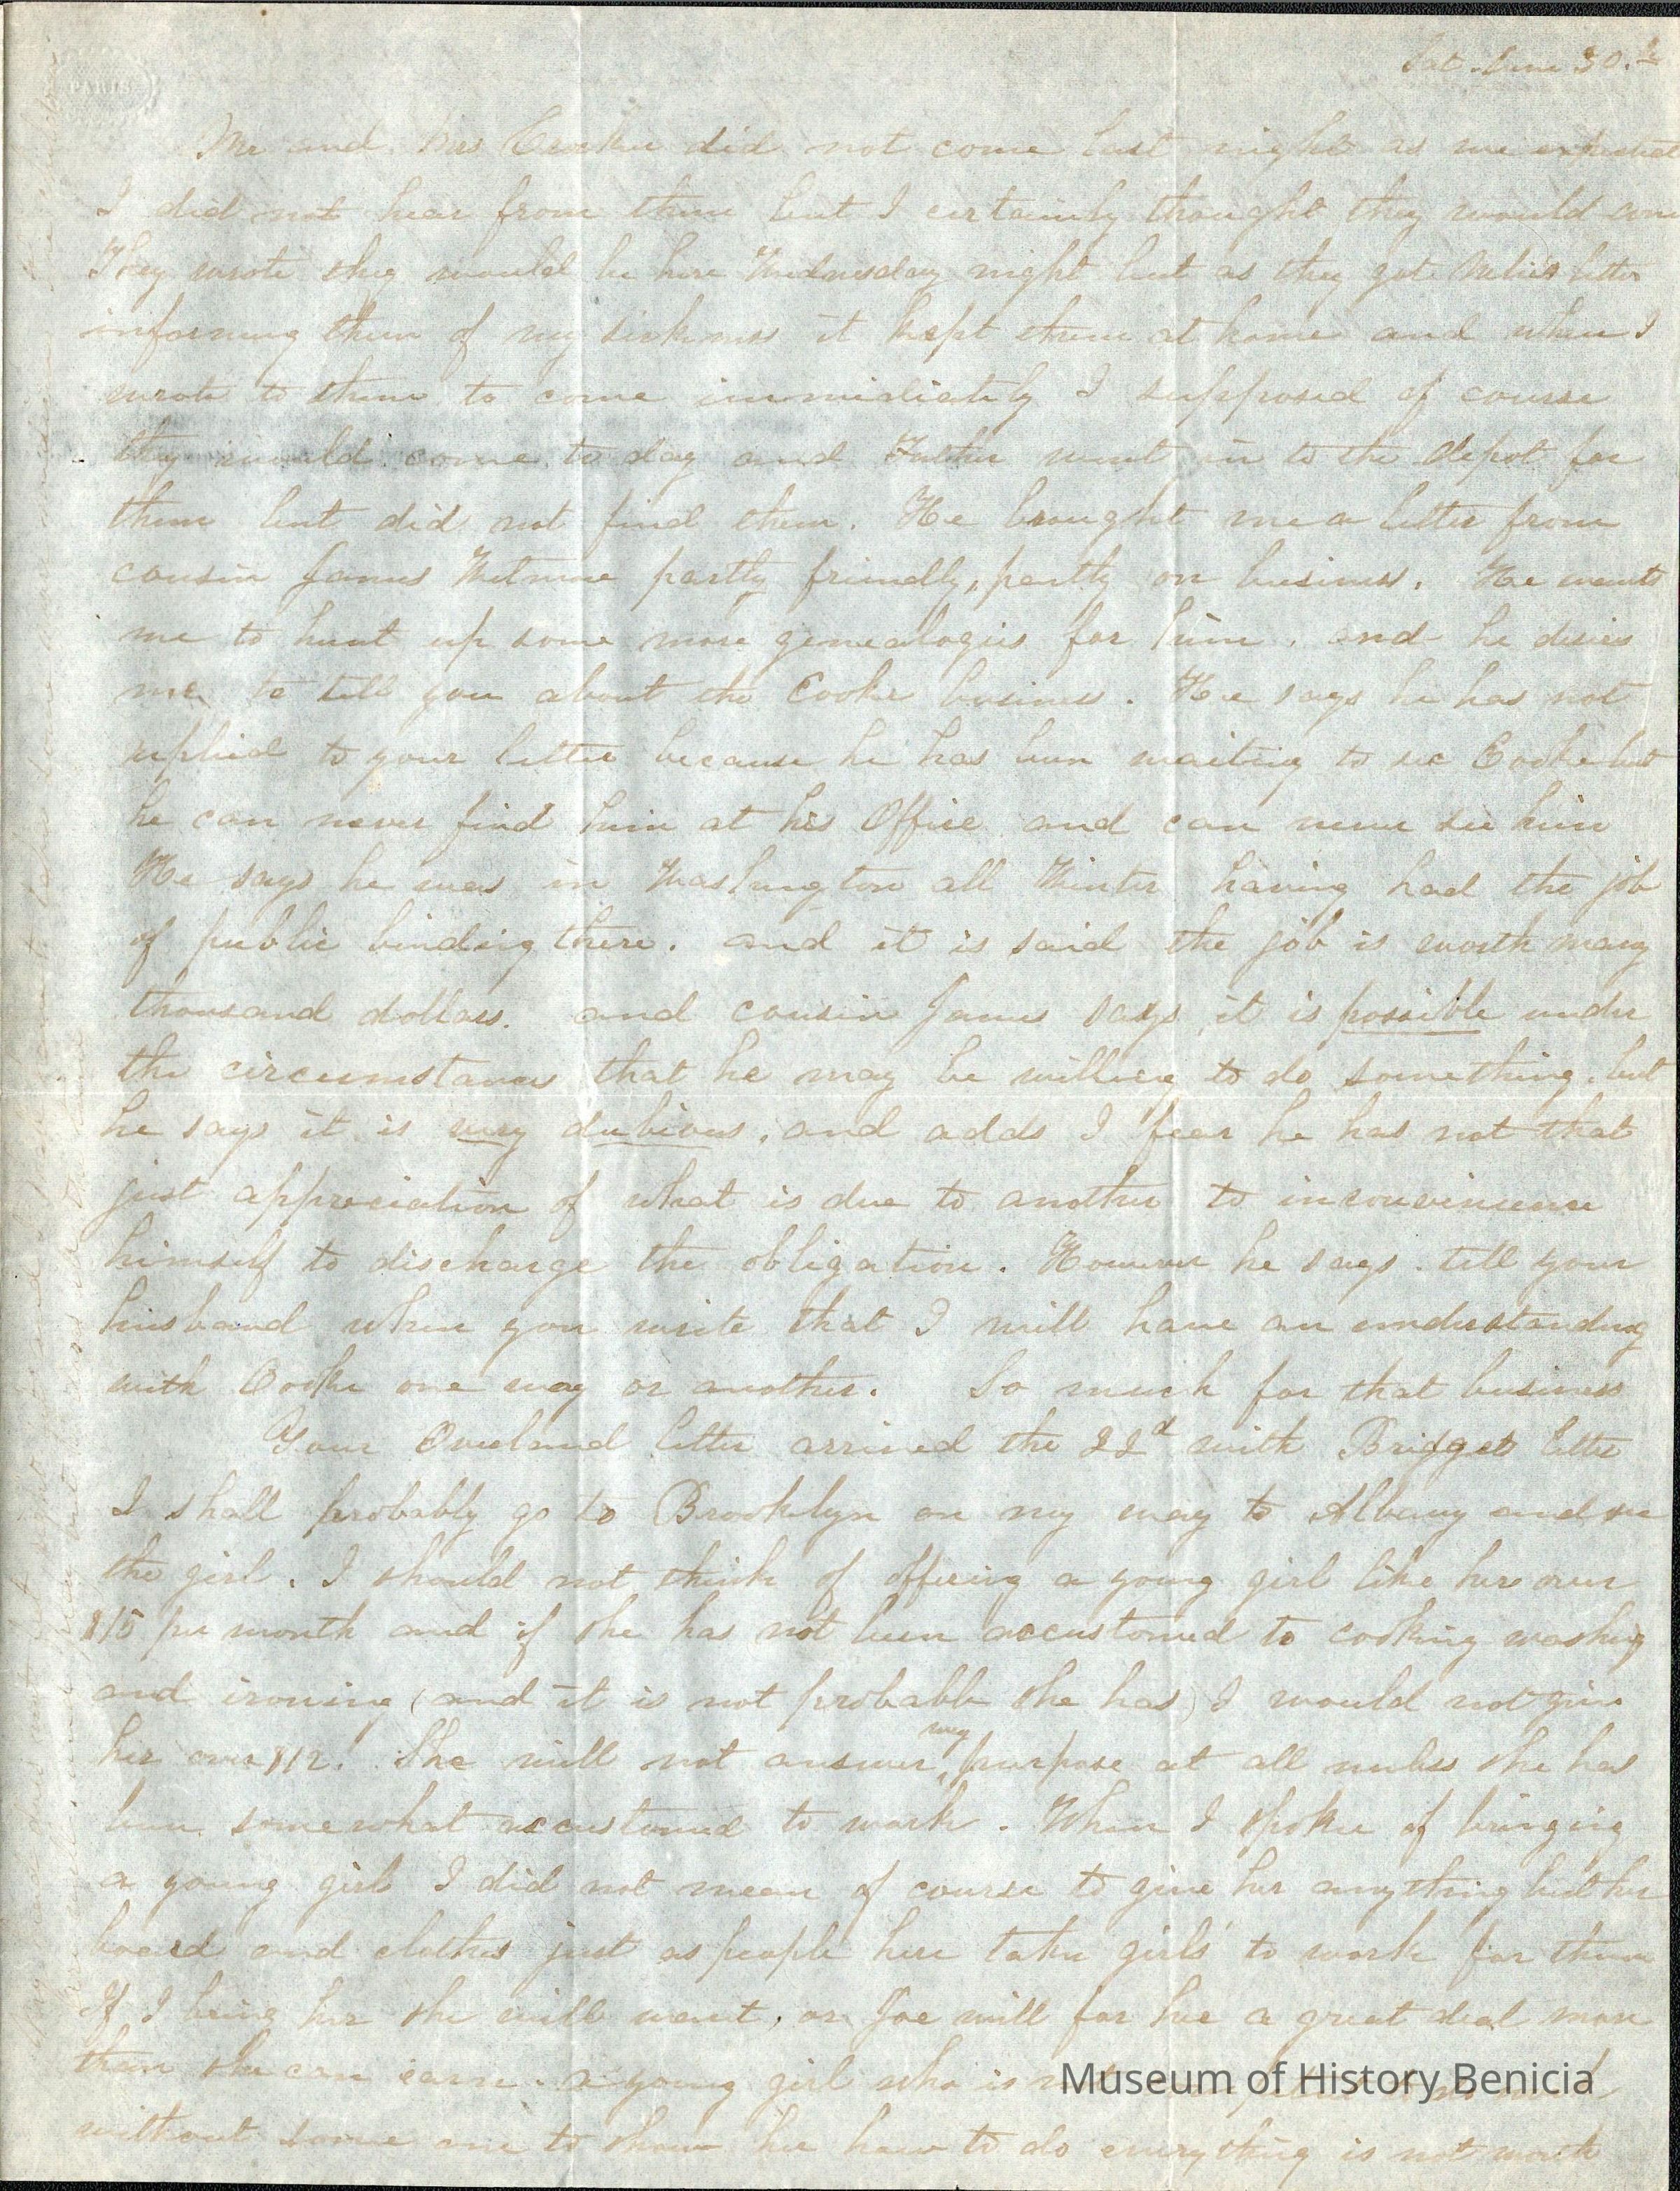 PARIS
Sat. June 30.th
Mr and Mrs Crocker did not come last night as we expected
I did not hear from them but I certainly thought they would come
They wrote they would be here Wednesday night but as they got letter
informing them of my sickness it kept them at home and when I
wrote to them to come immediately I supposed of course
they would come to day and Father went in to the depot for
them but did not find them. He brought me a letter from
cousin James Wetmore partly friendly, partly on business. He wants
me to hunt up some more genealogies for him. and he desires
me to tell you about the Cooke business. He says he has not
replied to your letter because he has been waiting to see Cooke but
he can never find him at his Office and can never see him
He says he was in Washington all Winter having had the job
of public binding there. and it is said the job is worth many
thousand dollars. and cousin James says it is possible under
the circumstances that he may be willing to do something. but
he says it is very dubious, and adds I fear he has not that
just appreciation of what is due to another to inconvenience
himself to discharge the obligation. However he says. tell your
husband when you write that I will have an understanding
with Cooke one way or another. So much for that business
Your Overland letter arrived the 22d with Bridgets letter
I shall probably go to Brooklyn on my way to Albany and see
the girl. I should not think of offering a young girl like her over
$15 per month and if she has not been accustomed to cooking washing
and ironing (and it is not probable she has) I would not give
her over $12. She will not answer my purpose at all unless she has
been somewhat accustomed to work. When I spoke of bringing
a young girl I did not mean of course to give her anything but her
board and clothes just as people here take girls to work for them
If I bring her she will want, or Joe will for her a great deal more
than she can earn. a young girl who is
without some one to show her how to do everything is not worth
Museum of History Benicia